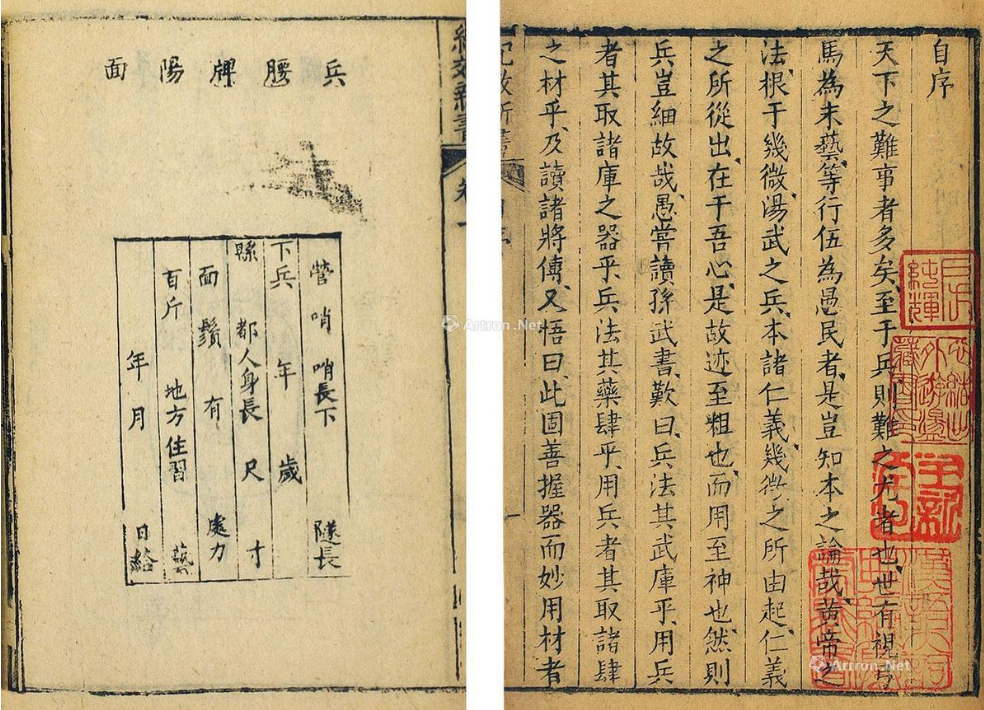 自序
天下之難事者多矣至于兵則難之尤者也世有視弓
馬為末藝等行伍為愚民者是豈知本之論哉黃帝之
法根于幾微湯武之兵本諸仁義幾微之所由起仁義
之所從出在于吾心是故迹至粗也而用至神也然則
兵豈細故哉愚嘗讀孫武書歎曰兵法其武庫乎用兵
者其取諸庫之器乎兵法其藥肆乎用兵者其取諸肆
之材乎及讀諸將傳又悟曰此固善握器而妙用材者
紀效新書
紀效新書 卷
兵腰牌陽面
營 哨 哨長下 隧長
下兵 年 歲
縣 都人身長 尺 寸
面 鬚 有 處力
百斤 地方住習 藝
年 月 日給
Artron.Net
Artron.Net